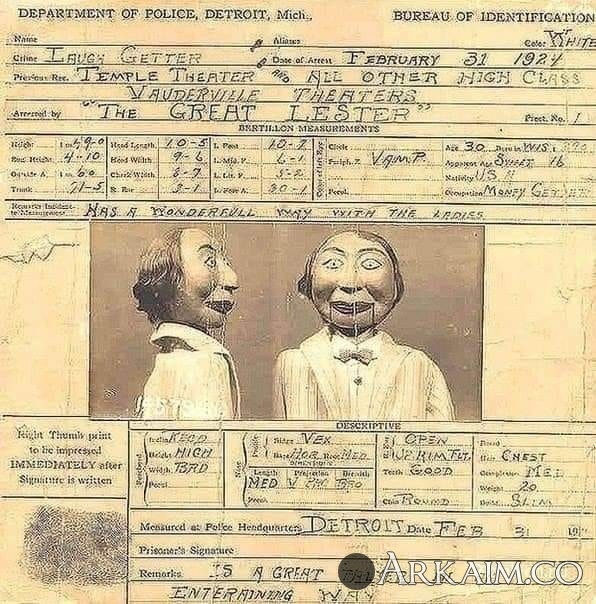 DEPARTMENT OF POLICE, DETROIT, Mich., BUREAU OF IDENTIFICATION
Name Aliases Color WHITE
Crime LAUGH GETTER Date of Arrest FEBRUARY 31 1924
Previous Rec. TEMPLE THEATER AND ALL OTHER HIGH CLASS
VAUDERVILLE THEATERS
Arrested by "THE GREAT LESTER" Prect. No. 1
BERTILLON MEASUREMENTS
Height Head Length 10-5 L. Foot 10-7 Circle Age 30 Born in WIS
Eng. Height 4-10 Head Width 9-6 L. Mid. F. 6-1 Periph. Z VAMP. Apparent Age SWEET 16
Outside A. Cheek Width L. Lit. F. 5-2 Nativity US A
Trunk 71-5 R. Ear 3-1 L. Fore A. 30-1 Pecul. Occupation MONEY GETTER
Remarks Incident to Measurements HAS A WONDERFULL WAY WITH THE LADIES
DESCRIPTIVE
Right Thumb print
to be impressed
IMMEDIATELY after
Signature is written
Inclin. Ridge VEX OPEN Beard
Height HIGH Base HOR Root MED Hair CHEST
Width BRD DIMENSIONS Teeth GOOD Complexion MED
Pecul. Length MED Projection Breadth Weight 20
Pecul. Chin ROUND Build SLIM
Measured at Police Headquarters DETROIT Date FEB 31
Prisoner's Signature
Remarks IS A GREAT
ENTERAINING WAY
ARKAIM.CO